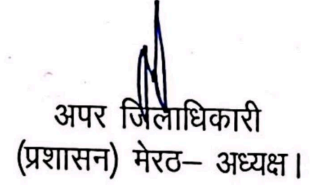 अपर जिलाधिकारी
(प्रशासन) मेरठ– अध्यक्ष।